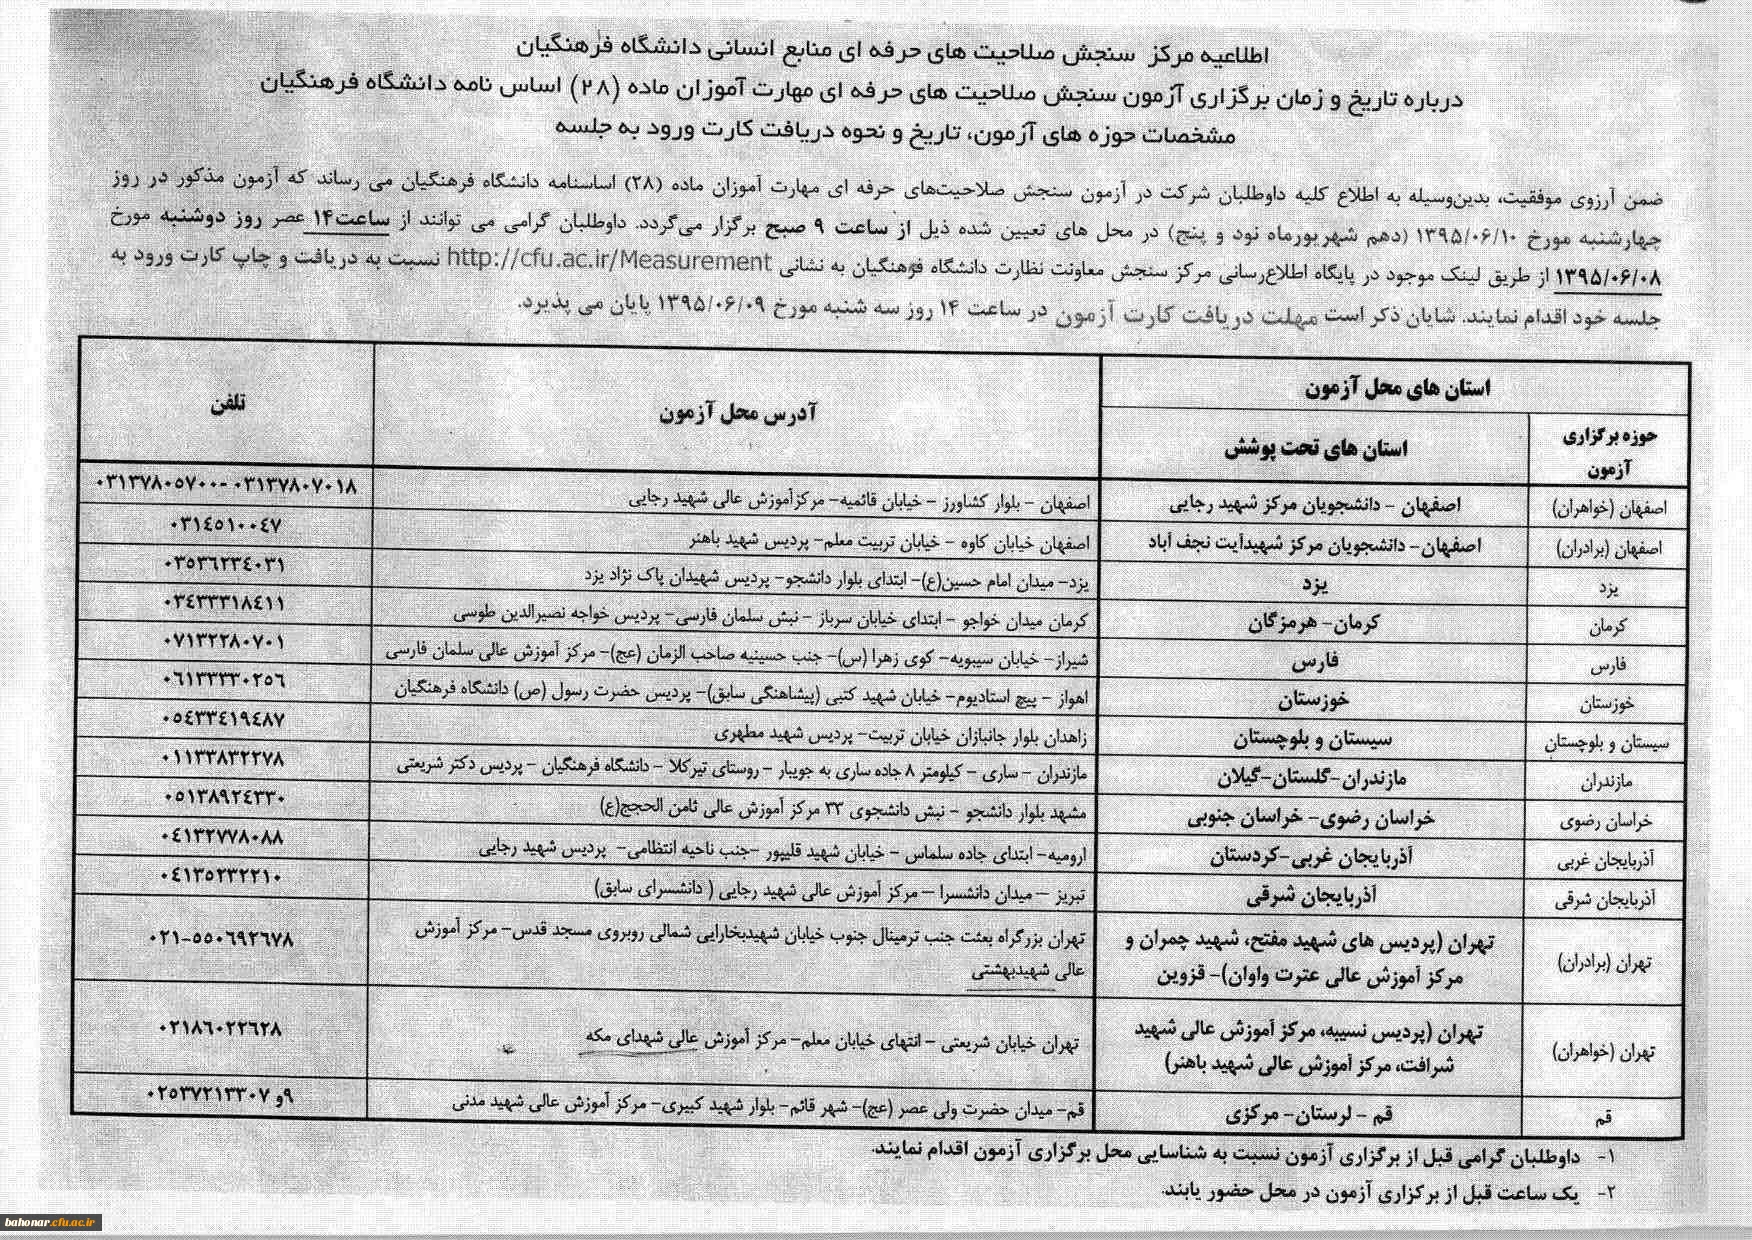 اطلاعیه مرکز سنجش صلاحیت های حرفه ای منابع انسانی دانشگاه فرهنگیان
درباره تاریخ و زمان برگزاری آزمون سنجش صلاحیت های حرفه ای مهارت آموزان ماده (۲۸) اساس نامه دانشگاه فرهنگیان
مشخصات حوزه های آزمون، تاریخ و نحوه دریافت کارت ورود به جلسه
ضمن آرزوی موفقیت، بدین‌وسیله به اطلاع کلیه داوطلبان شرکت در آزمون سنجش صلاحیت‌های حرفه ای مهارت آموزان ماده (۲۸) اساسنامه دانشگاه فرهنگیان می رساند که آزمون مذکور در روز
چهارشنبه مورخ ۱۳۹۵/۰۶/۱۰ (دهم شهریورماه نود و پنج) در محل های تعیین شده ذیل از ساعت ۹ صبح برگزار می‌گردد. داوطلبان گرامی می توانند از ساعت۱۴ عصر روز دوشنبه مورخ
۱۳۹۵/۰۶/۰۸ از طریق لینک موجود در پایگاه اطلاع‌رسانی مرکز سنجش معاونت نظارت دانشگاه فرهنگیان به نشانی http://cfu.ac.ir/Measurement نسبت به دریافت و چاپ کارت ورود به
جلسه خود اقدام نمایند. شایان ذکر است مهلت دریافت کارت آزمون در ساعت ۱۴ روز سه شنبه مورخ ۱۳۹۵/۰۶/۰۹ پایان می پذیرد.
استان های محل آزمون
حوزه برگزاری آزمون استان های تحت پوشش آدرس محل آزمون تلفن
اصفهان (خواهران) اصفهان - دانشجویان مرکز شهید رجایی اصفهان - بلوار کشاورز - خیابان قائمیه- مرکزآموزش عالی شهید رجایی ۰۳۱۳۷۸۰۵۷۰۰- ۰۳۱۳۷۸۰۷۰۱۸
اصفهان (برادران) اصفهان- دانشجویان مرکز شهیدآیت نجف آباد اصفهان خیابان کاوه - خیابان تربیت معلم- پردیس شهید باهنر ۰۳۱٤٥۱۰۰٤۷
یزد یزد یزد- میدان امام حسین(ع)- ابتدای بلوار دانشجو- پردیس شهیدان پاک نژاد یزد ۰۳٥۳٦۲۳٤۰۳۱
کرمان کرمان- هرمزگان کرمان میدان خواجو - ابتدای خیابان سرباز - نبش سلمان فارسی- پردیس خواجه نصیرالدین طوسی ۰۳٤۳۳۳۱۸٤۱۱
فارس فارس شیراز- خیابان سیبویه- کوی زهرا (س)- جنب حسینیه صاحب الزمان (عج)- مرکز آموزش عالی سلمان فارسی ۰۷۱۳۲۲۸۰۷۰۱
خوزستان خوزستان اهواز - پیچ استادیوم- خیابان شهید کتبی (پیشاهنگی سابق)- پردیس حضرت رسول (ص) دانشگاه فرهنگیان ۰٦۱۳۳۳۳۰۲٥٦
سیستان و بلوچستان سیستان و بلوچستان زاهدان بلوار جانبازان خیابان تربیت- پردیس شهید مطهری ۰٥٤۳۳٤۱۹٤۸۷
مازندران مازندران-گلستان-گیلان مازندران - ساری - کیلومتر ۸ جاده ساری به جویبار - روستای تیرکلا - دانشگاه فرهنگیان - پردیس دکتر شریعتی ۰۱۱۳۳۸۳۲۲۷۸
خراسان رضوی خراسان رضوی- خراسان جنوبی مشهد بلوار دانشجو - نبش دانشجوی ۳۳ مرکز آموزش عالی ثامن الحجج(ع) ۰٥۱۳۸۹۲٤۳۳۰
آذربایجان غربی آذربایجان غربی-کردستان ارومیه- ابتدای جاده سلماس - خیابان شهید قلیپور -جنب ناحیه انتظامی- پردیس شهید رجایی ۰٤۱۳۲۷۷۸۰۸۸
آذربایجان شرقی آذربایجان شرقی تبریز – میدان دانشسرا – مرکز آموزش عالی شهید رجایی ( دانشسرای سابق) ۰٤۱۳٥۲۳۲۲۱۰
تهران (برادران) تهران (پردیس های شهید مفتح، شهید چمران و مرکز آموزش عالی عترت واوان)- قزوین تهران بزرگراه بعثت جنب ترمینال جنوب خیابان شهیدبخارایی شمالی روبروی مسجد قدس- مرکز آموزش عالی شهیدبهشتی ۰۲۱-٥٥۰٦۹۲٦۷۸
تهران (خواهران) تهران (پردیس نسیبه، مرکز آموزش عالی شهید شرافت، مرکز آموزش عالی شهید باهنر) تهران خیابان شریعتی - انتهای خیابان معلم- مرکز آموزش عالی شهدای مکه ۰۲۱۸٦۰۲۲٦۲۸
قم قم - لرستان- مرکزی قم- میدان حضرت ولی عصر (عج)- شهر قائم- بلوار شهید کبیری- مرکز آموزش عالی شهید مدنی ۰۲٥۳۷۲۱۳۳۰۷ و۹
۱- داوطلبان گرامی قبل از برگزاری آزمون نسبت به شناسایی محل برگزاری آزمون اقدام نمایند.
۲- یک ساعت قبل از برگزاری آزمون در محل حضور یابند.
bahonar.cfu.ac.ir